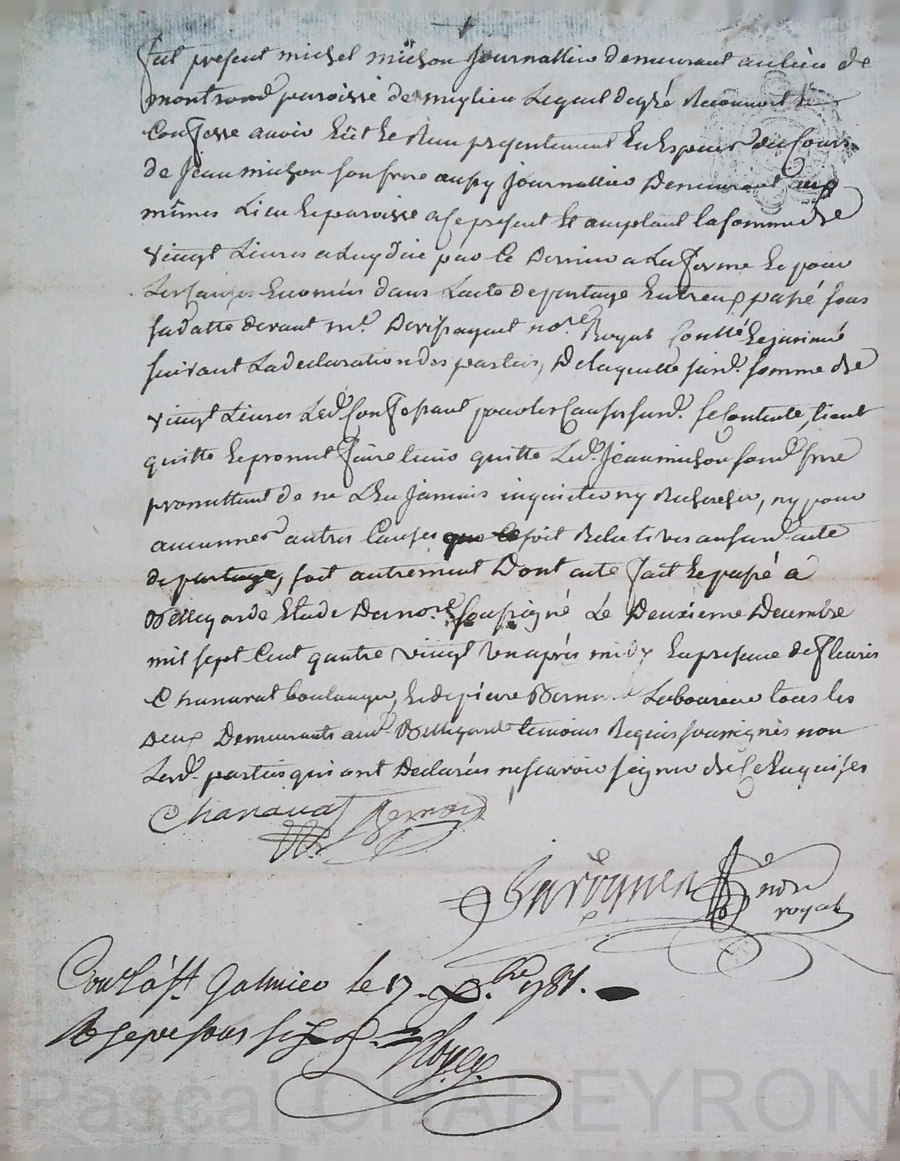 fut present michel michon journallier demeurant au lieu de
montrond paroisse de meylieu Lequel de gré Reconnoit et
Confesse avoir Eüt et Reçu presentement En Espece du Cours
de Jean michon son frere aussy journallier Demeurant aux
mêmes Lieu et paroisse a ce present et acceptant la somme de
vingt Livres a Luy düe par le Dernier a La forme et pour
Les causes Enoncés dans L'acte de partage Entreux passé sous
sa datte devant me. notre Royal Contllé
suivant La declaration des parties, De laquelle susde. somme de
vingt Livres Led. Confessant pour les Causes susd. se Contente, tient
quitte et promet faire tenir quitte Led. Jean michon sond. frere
promettant de ne L'En Jamais inquietter ny Rechercher, ny pour
aucunnes autres Causes que ce soit Relatives au susd. acte
de partage, soit autrement Dont acte fait et passé à
Bellegarde Etude Du nore. soussigné Le Deuxieme Decembre
mil sept Cent quatre vingt un après midy En presence de fleuris
Chanavat boulanger, et de pierre Laboureur tous les
Deux Demeurants aud. Bellegarde temoins Requis soussignés non
Lesd. parties qui ont Declarées ne scavoir signer de ce Enquises
Chanavat
nore
royal
Conlé à st. Galmier le 17. Xbre 1781.
Reçu sous